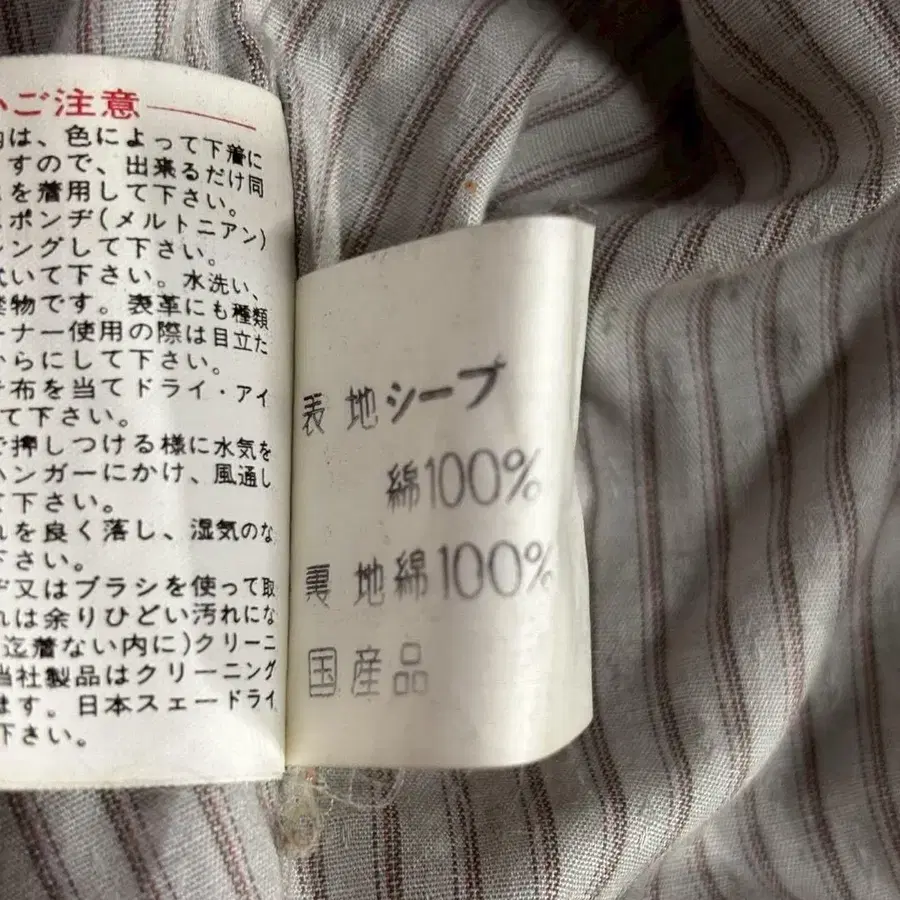 ご注意
は、色によって下着に
すので、出来るだけ同
を着用して下さい。
ポンヂ(メルトニアン)
ングして下さい。
いて下さい。水洗い、
物です。表革にも種類
ーナー使用の際は目立た
からにして下さい。
布を当てドライ・アイ
て下さい。
で押しつける様に水気を
ハンガーにかけ、風通し
て下さい。
れを良く落し、湿気のな
下さい。
又はブラシを使って取
れは余りひどい汚れにな
迄着ない内に)クリーニ
当社製品はクリーニング
ます。日本スエードライ
下さい。
表地シープ
綿100%
裏地綿100%
国産品